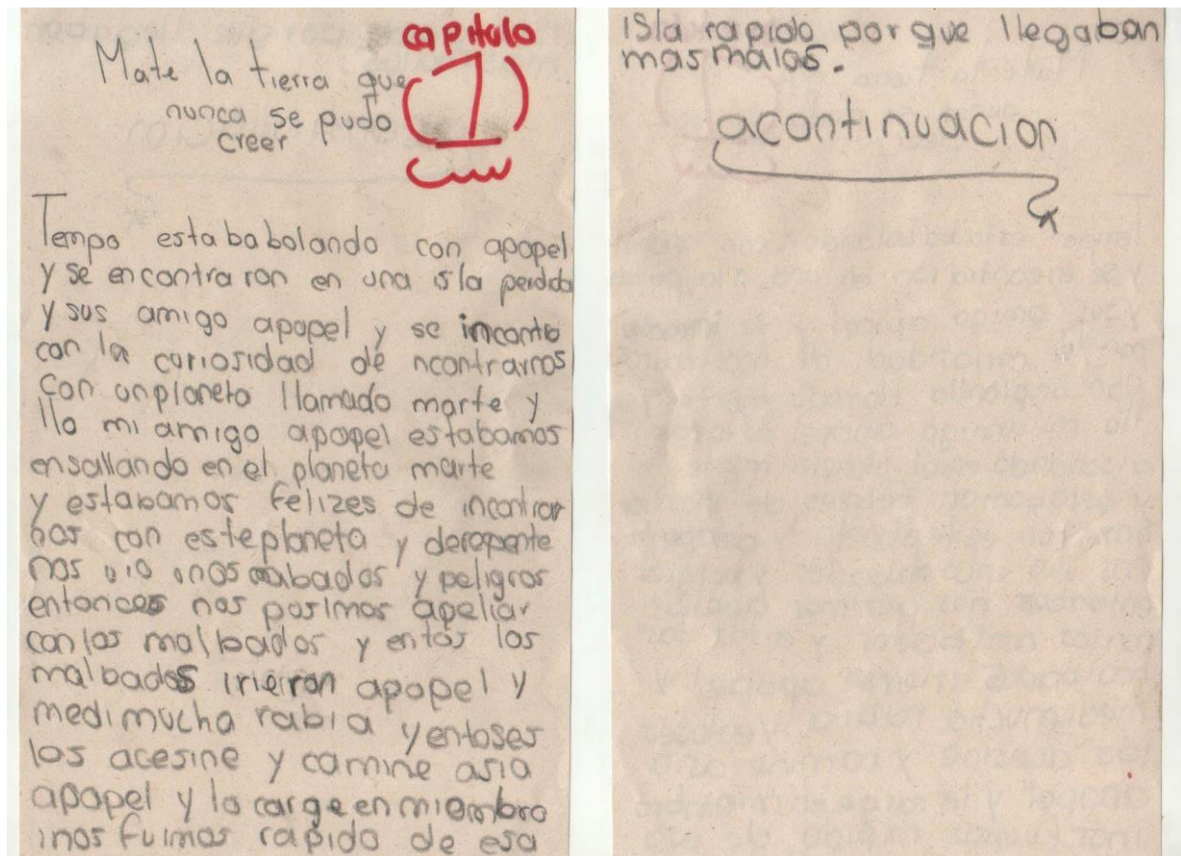 capitulo
1
Mate la tierra que
nunca se pudo
creer
Tempo estababolando con apopel
y se encontraron en una isla perdida
y sus amigo apopel y se incanto
con la curiosidad de ncontrarnos
con unplaneta llamado marte y
llo mi amigo apopel estabamos
ensallando en el planeta marte
y estabamos felizes de incontrar
nos con esteplaneta y derepente
nos vio unos malbados y peligros
entonces nos posimos apeliar
con los malbados y entós los
malbados irieron apopel y
medimucha rabia yentoses
los acesine y camine asia
apopel y lo carge en miombro
inos fuimos rapido de esa
isla rapido porque llegaban
mas malos.
acontinuacion